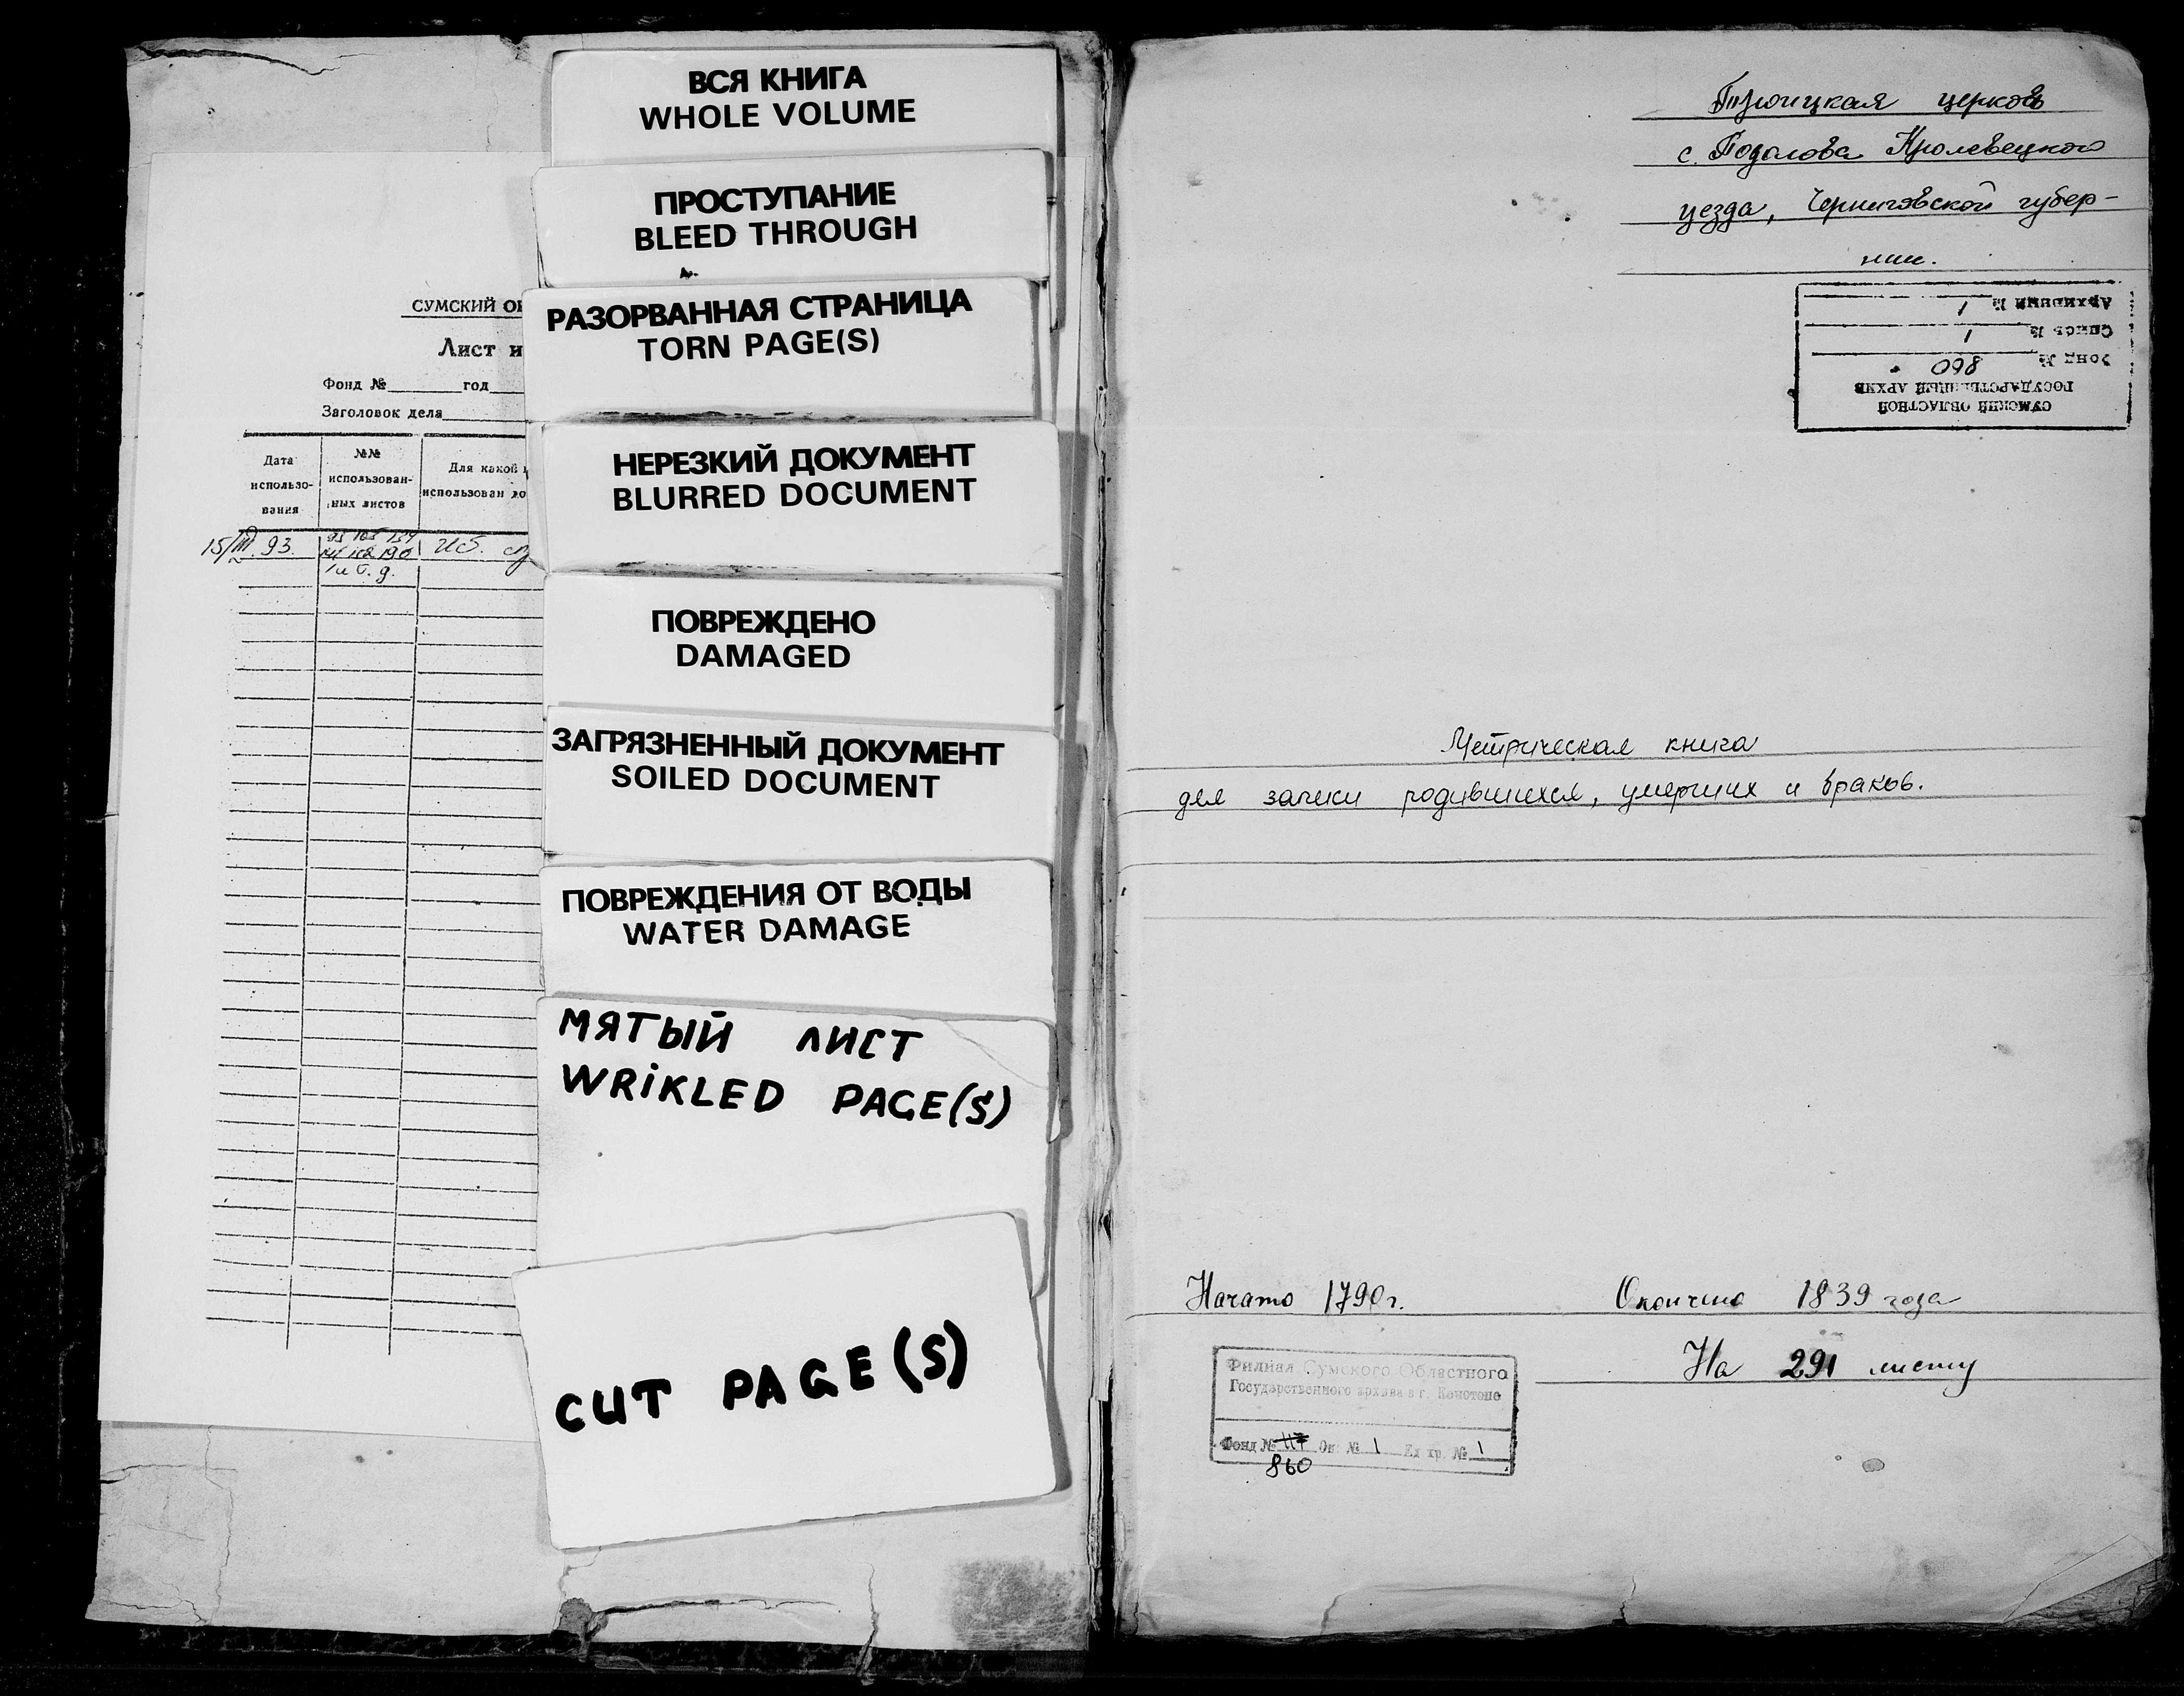 СУМСКИЙ ОБ
Лист и
Фонд №        год
Заголовок дела
Дата использо-вания
№№ использован-ных листов
Для какой ц
использован до
15/III.93.
и т. д.
ВСЯ КНИГА
WHOLE VOLUME
ПРОСТУПАНИЕ
BLEED THROUGH
РАЗОРВАННАЯ СТРАНИЦА
TORN PAGE(S)
НЕРЕЗКИЙ ДОКУМЕНТ
BLURRED DOCUMENT
ПОВРЕЖДЕНО
DAMAGED
ЗАГРЯЗНЕННЫЙ ДОКУМЕНТ
SOILED DOCUMENT
ПОВРЕЖДЕНИЯ ОТ ВОДЫ
WATER DAMAGE
МЯТЫЙ ЛИСТ
WRIKLED PAGE(S)
CUT PAGE(S)
Троицкая церковь
с. Подолова Кролевецкого
уезда, Черниговской губер-
нии.
СУМСКИЙ ОБЛАСТНОЙ
ГОСУДАРСТВЕННЫЙ АРХИВ
Фонд № 860
Опись № 1
Архивный № 1
Метрическая книга
для записи родившихся, умерших и браков.
Начато 1790 г. Окончено 1839 года
На 291 листу
Филиал Сумского Областного
Государственного архива в г. Конотопе
Фонд № 117 Оп. № 1 Ед. хр. № 1
860